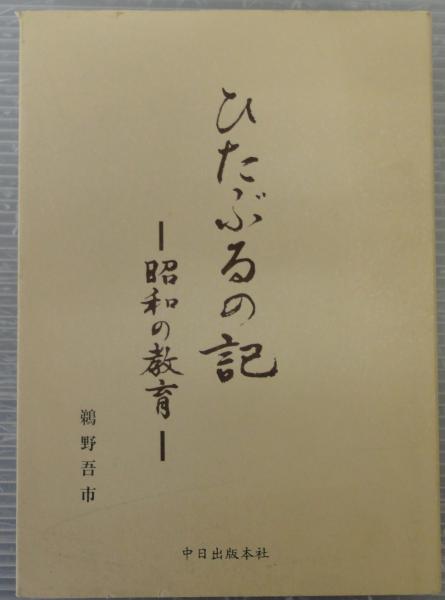 ひたぶるの記
―昭和の教育―
鵜野吾市
中日出版本社